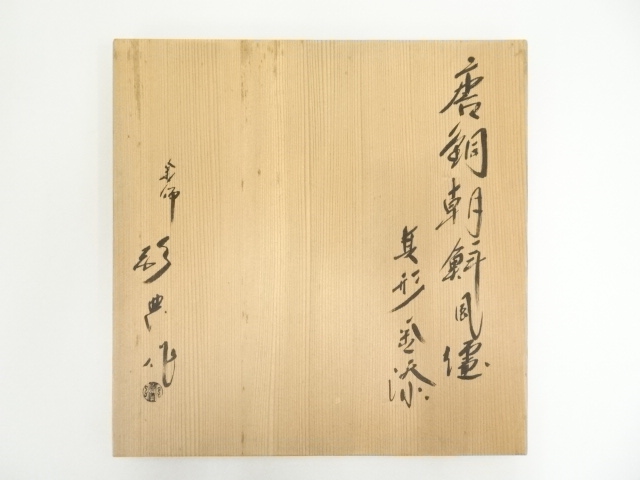 唐銅朝鮮風爐
真形釜添
釜師 典作